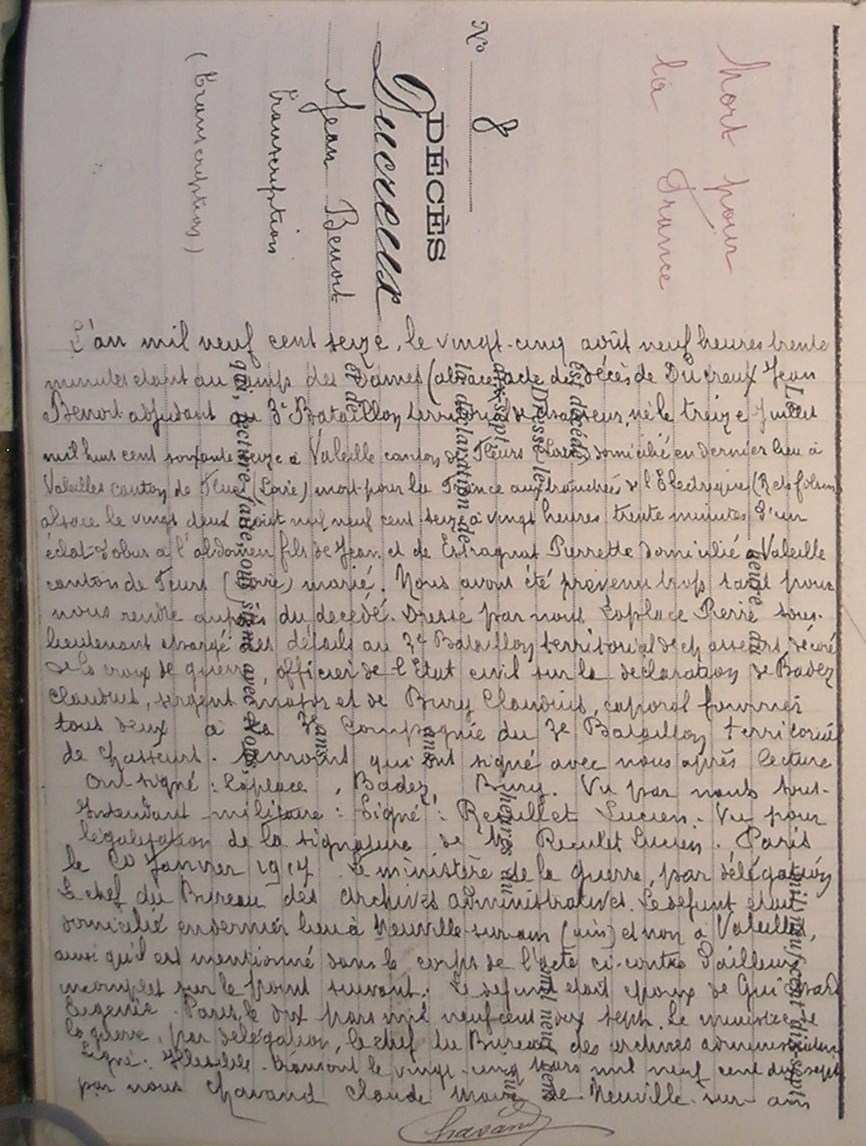 Mort pour
la France
N° 8
DÉCÈS
Ducreux
Jean Benoit
transcription
(transcription)
L'an mil neuf cent seize, le vingt-cinq août neuf heures trente
minutes étant au camp des Dames (alsace) acte de décès de Ducreux Jean
Benoit adjudant au 3e Bataillon territorial de chasseurs, né le treize Juillet
mil huit cent soixante seize à Valeille canton de Feurs (Loire) domicilié en dernier lieu à
Valeilles canton de Feurs (Loire) mort pour la France aux tranchées de l'Electrique
alsace le vingt deux août mil neuf cent seize à vingt heures trente minutes d'un
éclat d'obus à l'abdomen fils de Jean et de Estragnat Pierrette domicilié à Valeille
canton de Feurs (Loire) marié. Nous avons été prévenu trop tard pour
nous rendre auprès du décédé. Dressé par nous Laplace Pierre sous-
lieutenant chargé des détails au 3e Bataillon territorial de chasseurs, décoré
de la croix de guerre, officier de l'Etat civil sur la déclaration de Badez
Claudius, sergent major et de Bury Claudius, caporal fourrier
tous deux à la Compagnie du 3e Bataillon territorial
de chasseurs. témoins qui ont signé avec nous après lecture
Ont signé : Laplace, Badez, Bury. Vu par nous Sous-
Intendant militaire : Signé : Lucien. Vu pour
légalisation de la signature de Mr Lucien. Paris
le 20 Janvier 1917. Le ministère de la guerre, par délégation
Le chef du Bureau des archives administratives. Le défunt était
domicilié en dernier lieu à Neuville-sur-ain (ain) et non à Valeilles,
ainsi qu'il est mentionné dans le corps de l'acte ci-contre d'ailleurs
incomplet sur le point suivant : Le défunt était époux de
Eugénie. Paris, le dix mars mil neuf cent dix sept. Le ministre de
la guerre, par délégation, le chef du Bureau des archives administratives
Signé : Transcrit le vingt-cinq mars mil neuf cent dix sept
par nous Chavand Claude Maire de Neuville-sur-ain
Chavand
Le
est décédé
Dressé le
dix-sept
la déclaration de
et de
qui, lecture faite, ont signé avec Nous,
ans
ans
heures du
mil neuf cent dix-sept
mil neuf cent